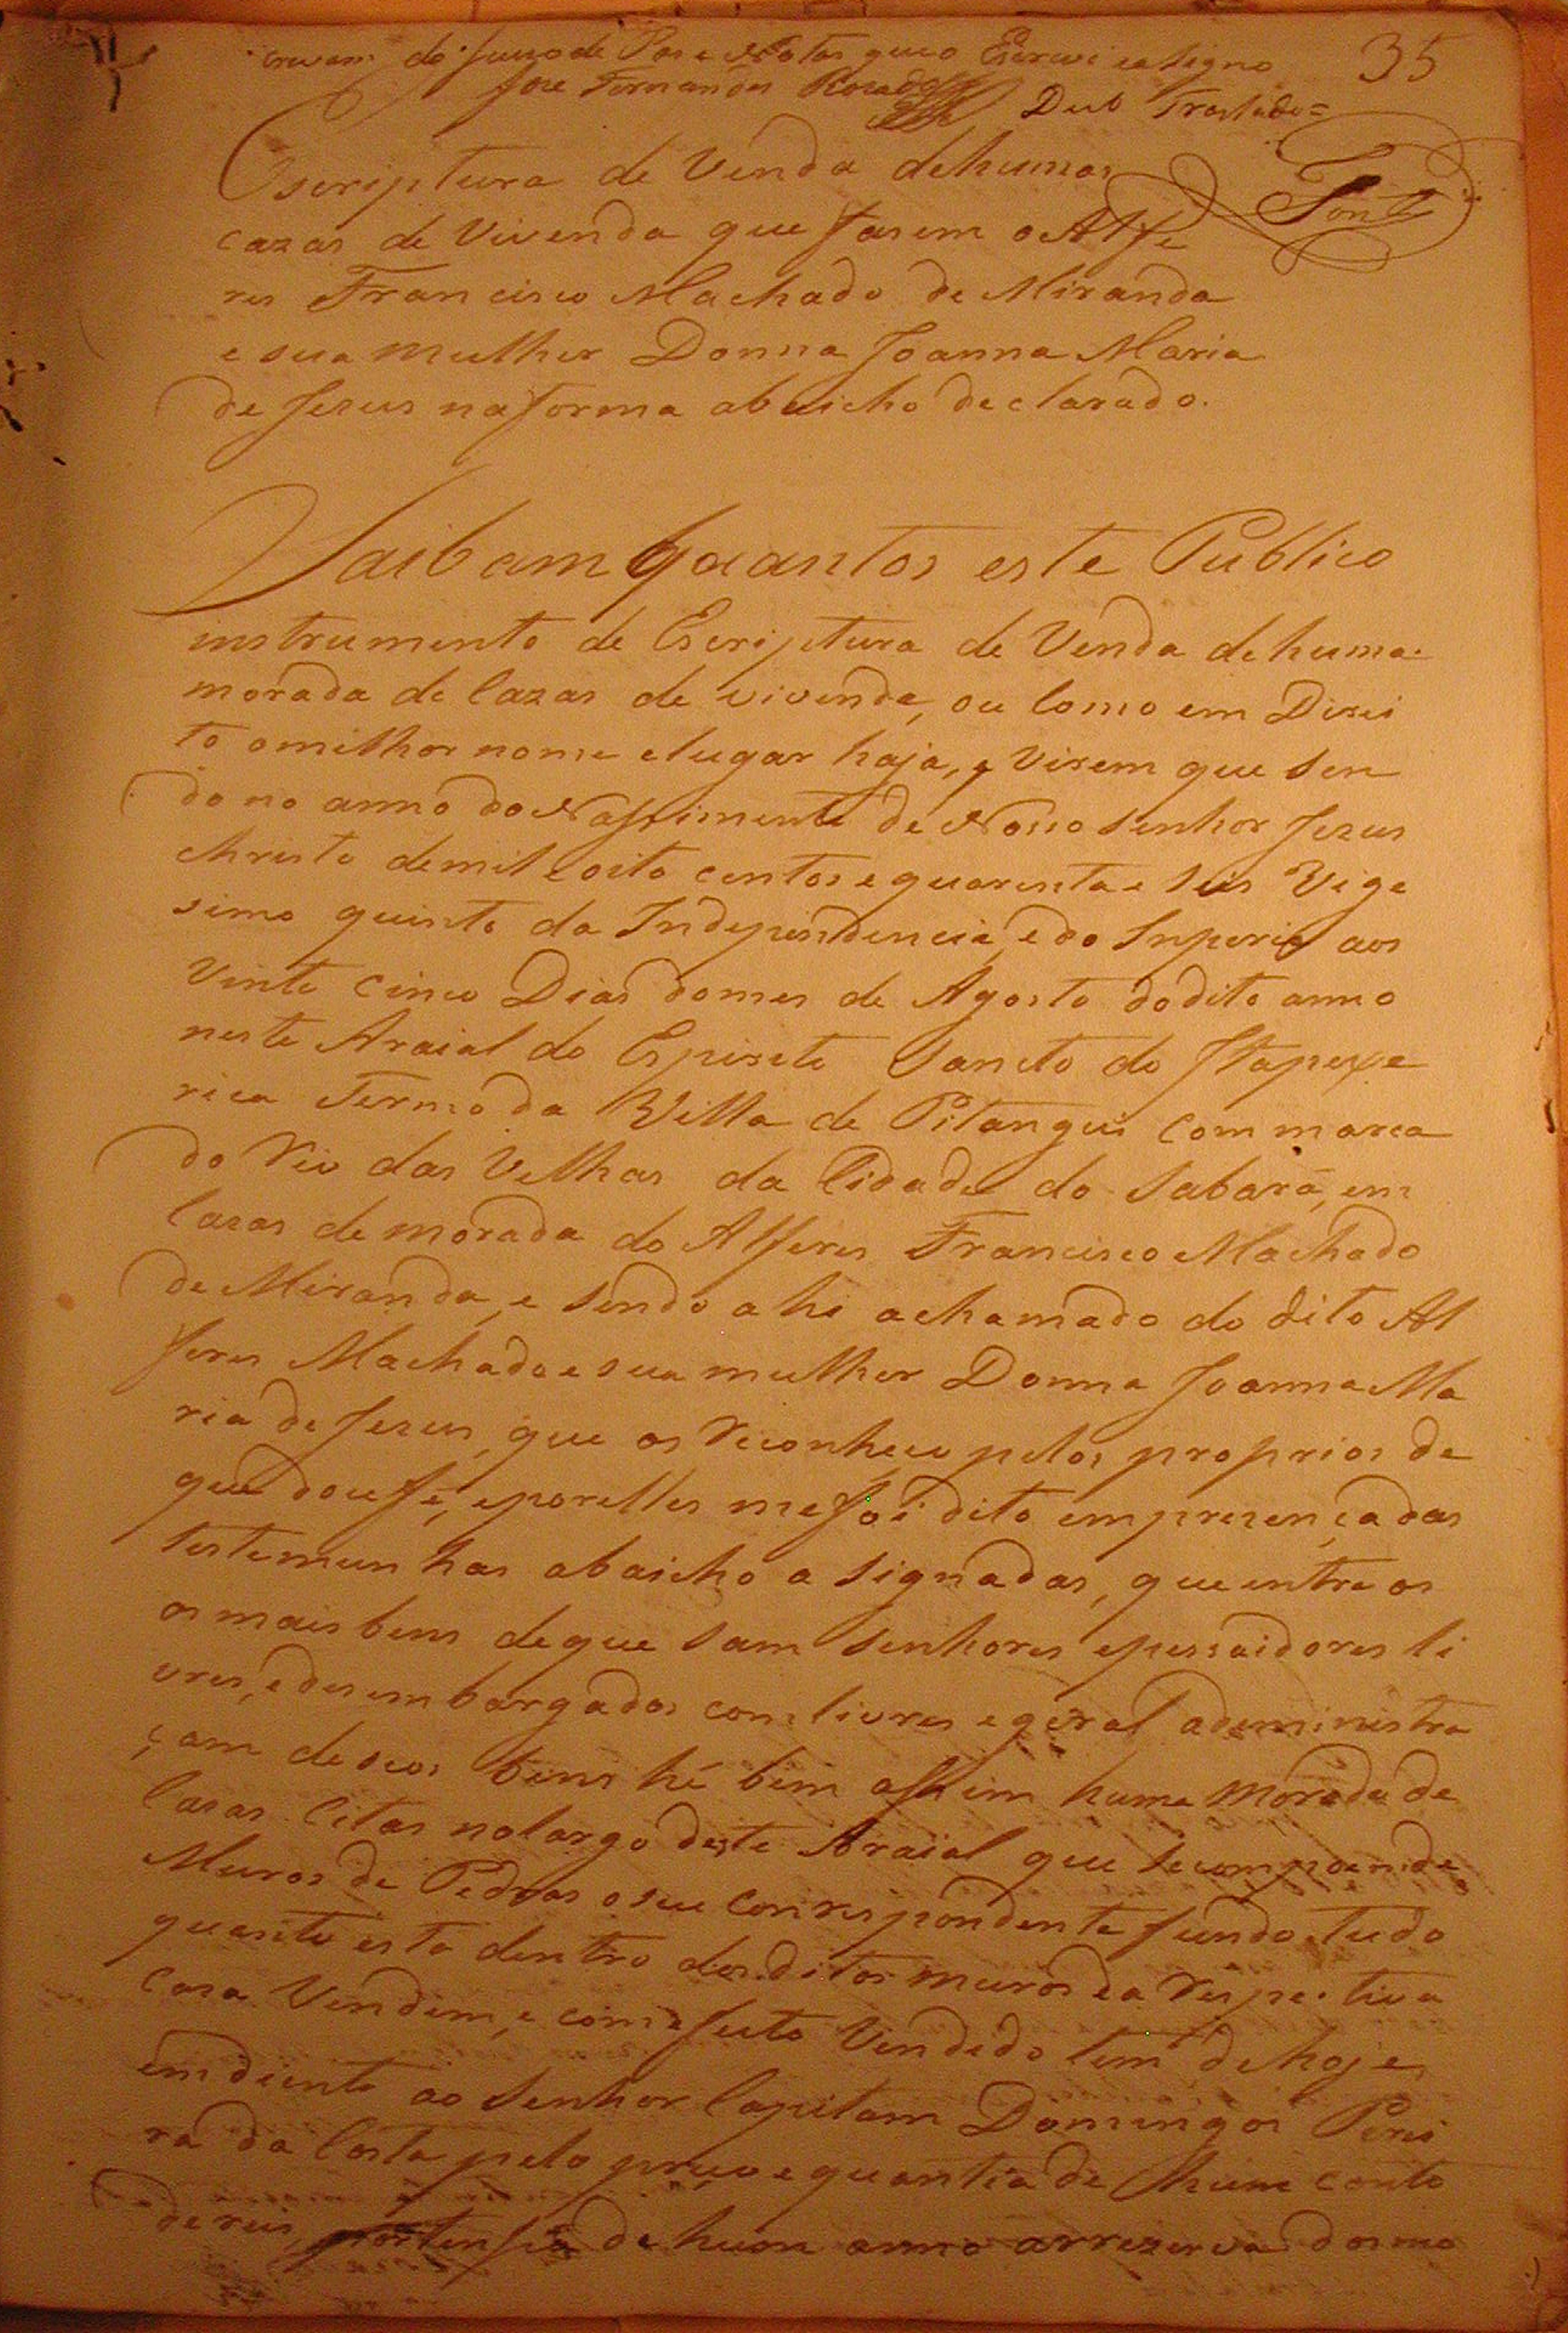 crivam do Juizo de Pas e Nottas que o Escrevi e a Signo
35
Jose Fernandes Rosado
Deu Traslado=
Escriptura de Venda dehumas
cazas de Vivenda que fasem o Alfe
res Francisco Machado de Miranda
e sua mulher Donna Joanna Maria
de Jezus na forma abaicho declarado.
Saibam Quantos este Publico
instrumento de Escriptura de Venda dehuma
morada de Cazas de vivenda, ou Como em Direi
to omilhor nome elugar haja, e Virem que Sen
do no anno do Nassimento de Nosso Senhor Jezus
Christo demil e oito centos e quarenta e Seis Vige
simo quinto da Independencia, e do Inperio aos
Vinte Cinco Dias domes de Agosto dodito anno
neste Araial do Espirito Sancto do Itapexe
rica Termo da Villa de Pitangui Com marca
do Rio das Velhas da Cidade do Sabará, em
Cazas de morada do Alferes Francisco Machado
de Miranda, e Sendo a hi achamado do dito Al
feres Machado e sua mulher Donna Joanna Ma
ria de Jezus, que os Reconheco pelos proprios de
que dou fé, eporelles me foi dito em prezença das
testemunhas abaicho a Signadas, que entre os
os mais bens deque sam Senhores epessuidores li
vres, edesembargados com livres e geraladeministra
çam de seos bens hé bem assim huma Morada de
Cazas Citas nolargo deste Araial que Secompoem de
Muros de Pedras o seu Conrespondente fundo, tudo
quanto esta dentro dos ditos muros ea Respectiva
Caza Vendem, e com efeito Vendido tem de hoje
em diente ao Senhor Capitam Domingos Perei
ra da Costa pelo preco e quantia de hum conto
de reis, de hum anno arrezerva dos mo